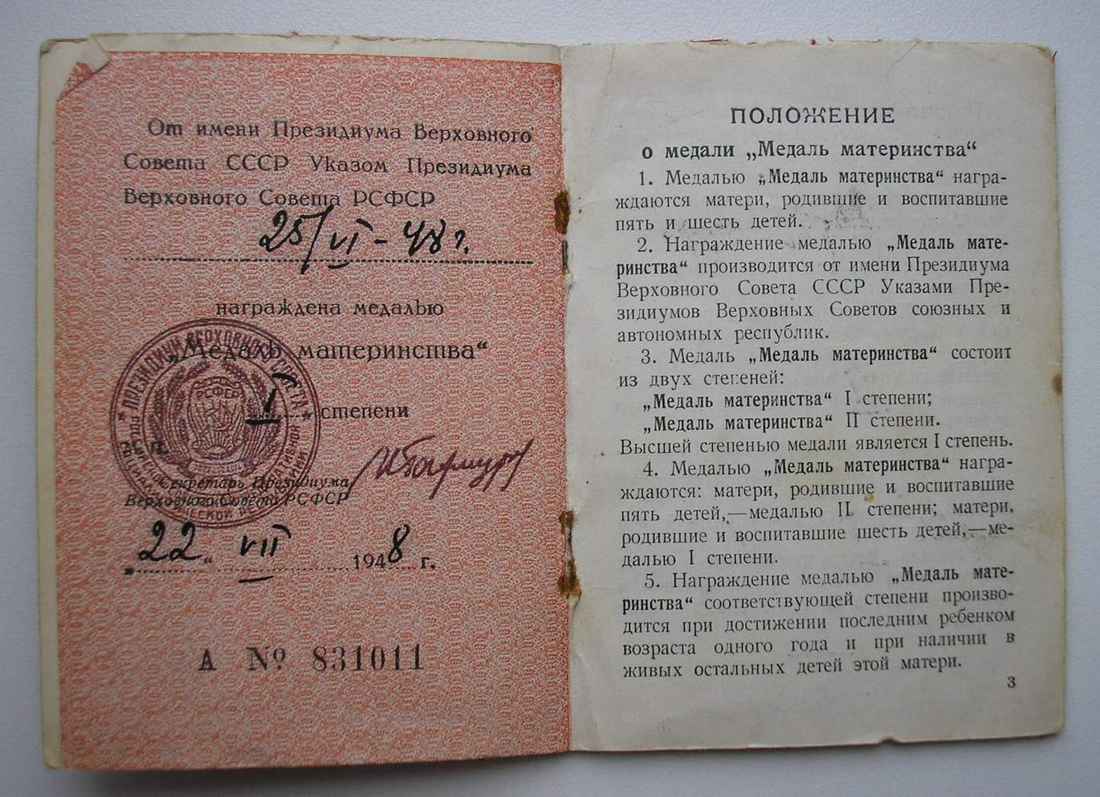 От имени Президиума Верховного
Совета СССР Указом Президиума
Верховного Совета РСФСР
25/VI – 48 г.
награждена медалью
„Медаль материнства“
I степени
РСФСР
Секретарь Президиума
Верховного Совета РСФСР
„22„ VII 1948 г.
А № 831011
ПОЛОЖЕНИЕ
о медали „Медаль материнства“
1. Медалью „Медаль материнства“ награ-
ждаются матери, родившие и воспитавшие
пять и шесть детей.
2. Награждение медалью „Медаль мате-
ринства“ производится от имени Президиума
Верховного Совета СССР Указами Пре-
зидиумов Верховных Советов союзных и
автономных республик.
3. Медаль „Медаль материнства“ состоит
из двух степеней:
„Медаль материнства“ I степени;
„Медаль материнства“ II степени.
Высшей степенью медали является I степень.
4. Медалью „Медаль материнства“ награ-
ждаются: матери, родившие и воспитавшие
пять детей,—медалью II степени; матери,
родившие и воспитавшие шесть детей,—ме-
далью I степени.
5. Награждение медалью „Медаль мате-
ринства“ соответствующей степени произво-
дится при достижении последним ребенком
возраста одного года и при наличии в
живых остальных детей этой матери.
3